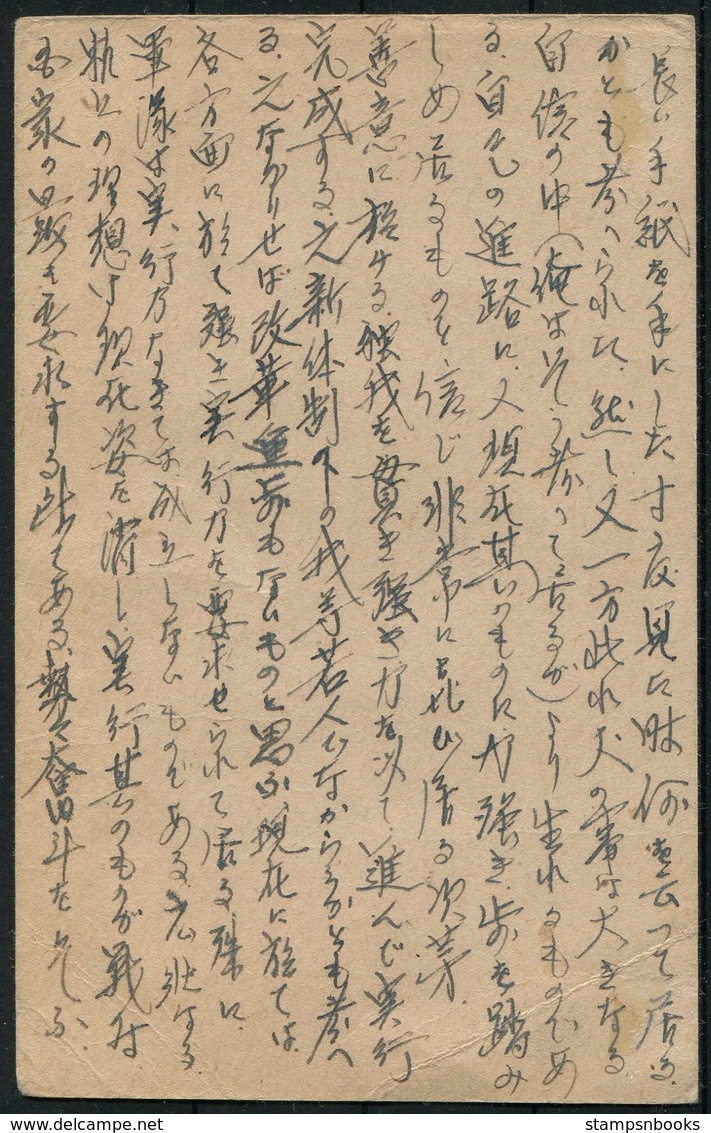 長い手紙を手にした丁度見た時何を云って居る
かとも考へられた、然し又一方此れ丈の事は大きなる
自信の中(俺はそう考って居るが)より生れるものであ
る、自己の進路に、又現在其のものに力強き歩を踏み
しめて居るものと信じ非常に喜び居る次第、
善意に於ける独我を貫き強き力を以て、進んで実行
完成する、之新体制下の我等若人でなからうかとも考へ
る、之なかりせば改革進歩もないものと思ふ、現在に於ては
各方面に於て強き実行力を要求せられて居る、殊に
軍隊は実行力なきでは成立しないものである、
軌上の理想は現在姿を消し、実行其のものが戦時
国家の要求する時である、奮斗を
stampsnbooks